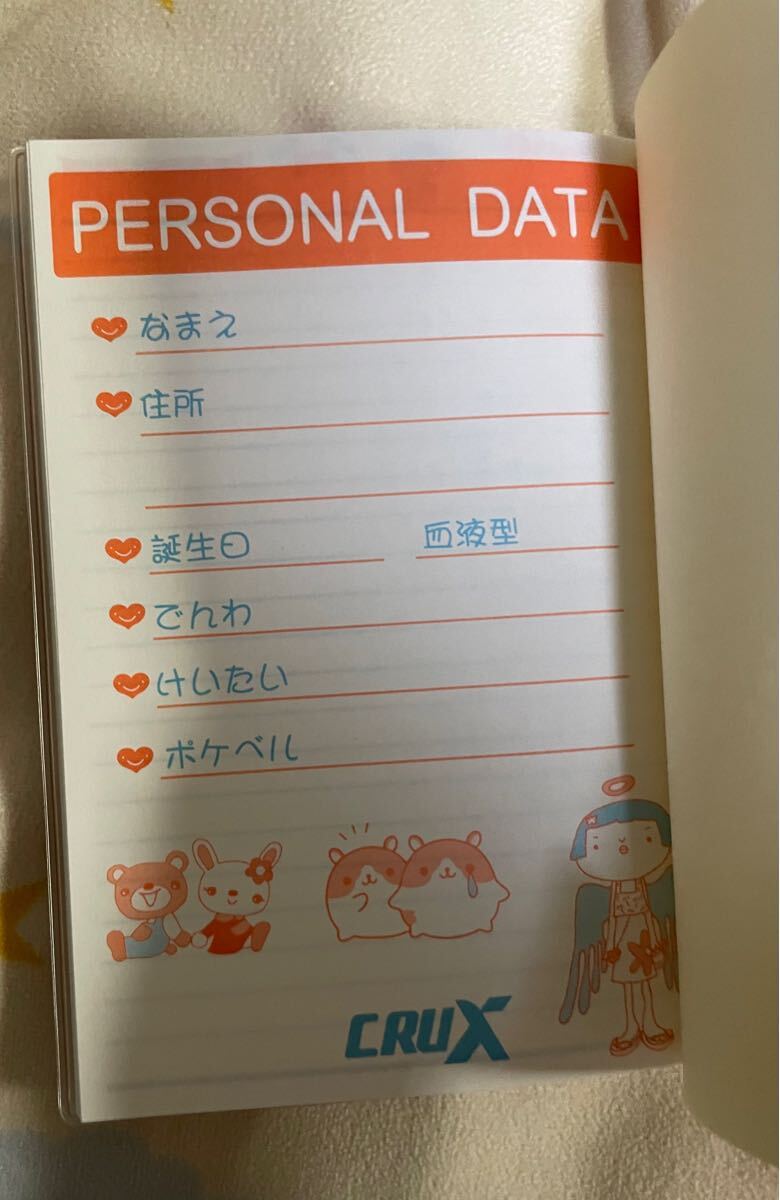 PERSONAL DATA
なまえ
住所
誕生日 血液型
でんわ
けいたい
ポケベル
CRUX